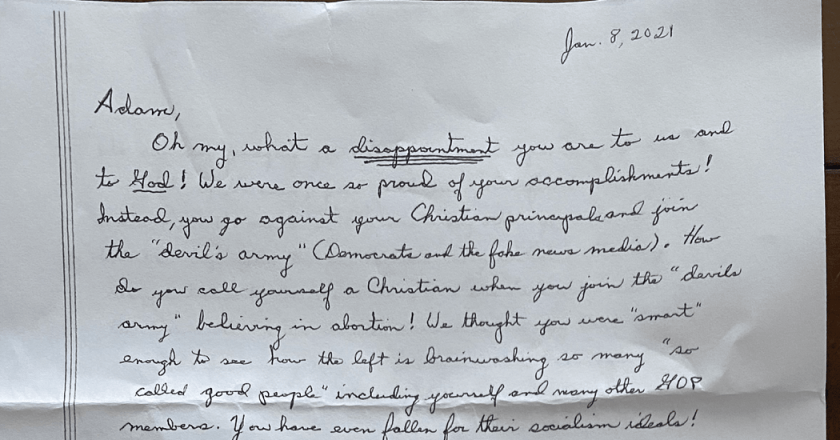 Jan. 8, 2021
Adam,
Oh my, what a disappointment you are to us and
to God! We were once so proud of your accomplishments!
Instead, you go against your Christian principals and join
the "devil's army" (Democrats and the fake news media). How
do you call yourself a Christian when you join the "devils
army" believing in abortion! We thought you were "smart"
enough to see how the left is brainwashing so many "so
called good people" including yourself and many other GOP
members. You have even fallen for their socialism ideals!